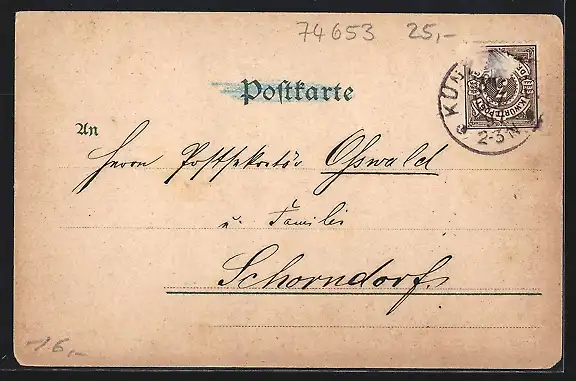 74653 25,-
Postkarte
An
Herrn Postsekretär Oßwald
u. Familie
Schorndorf.
KÜN
2-3 N
-/6,-